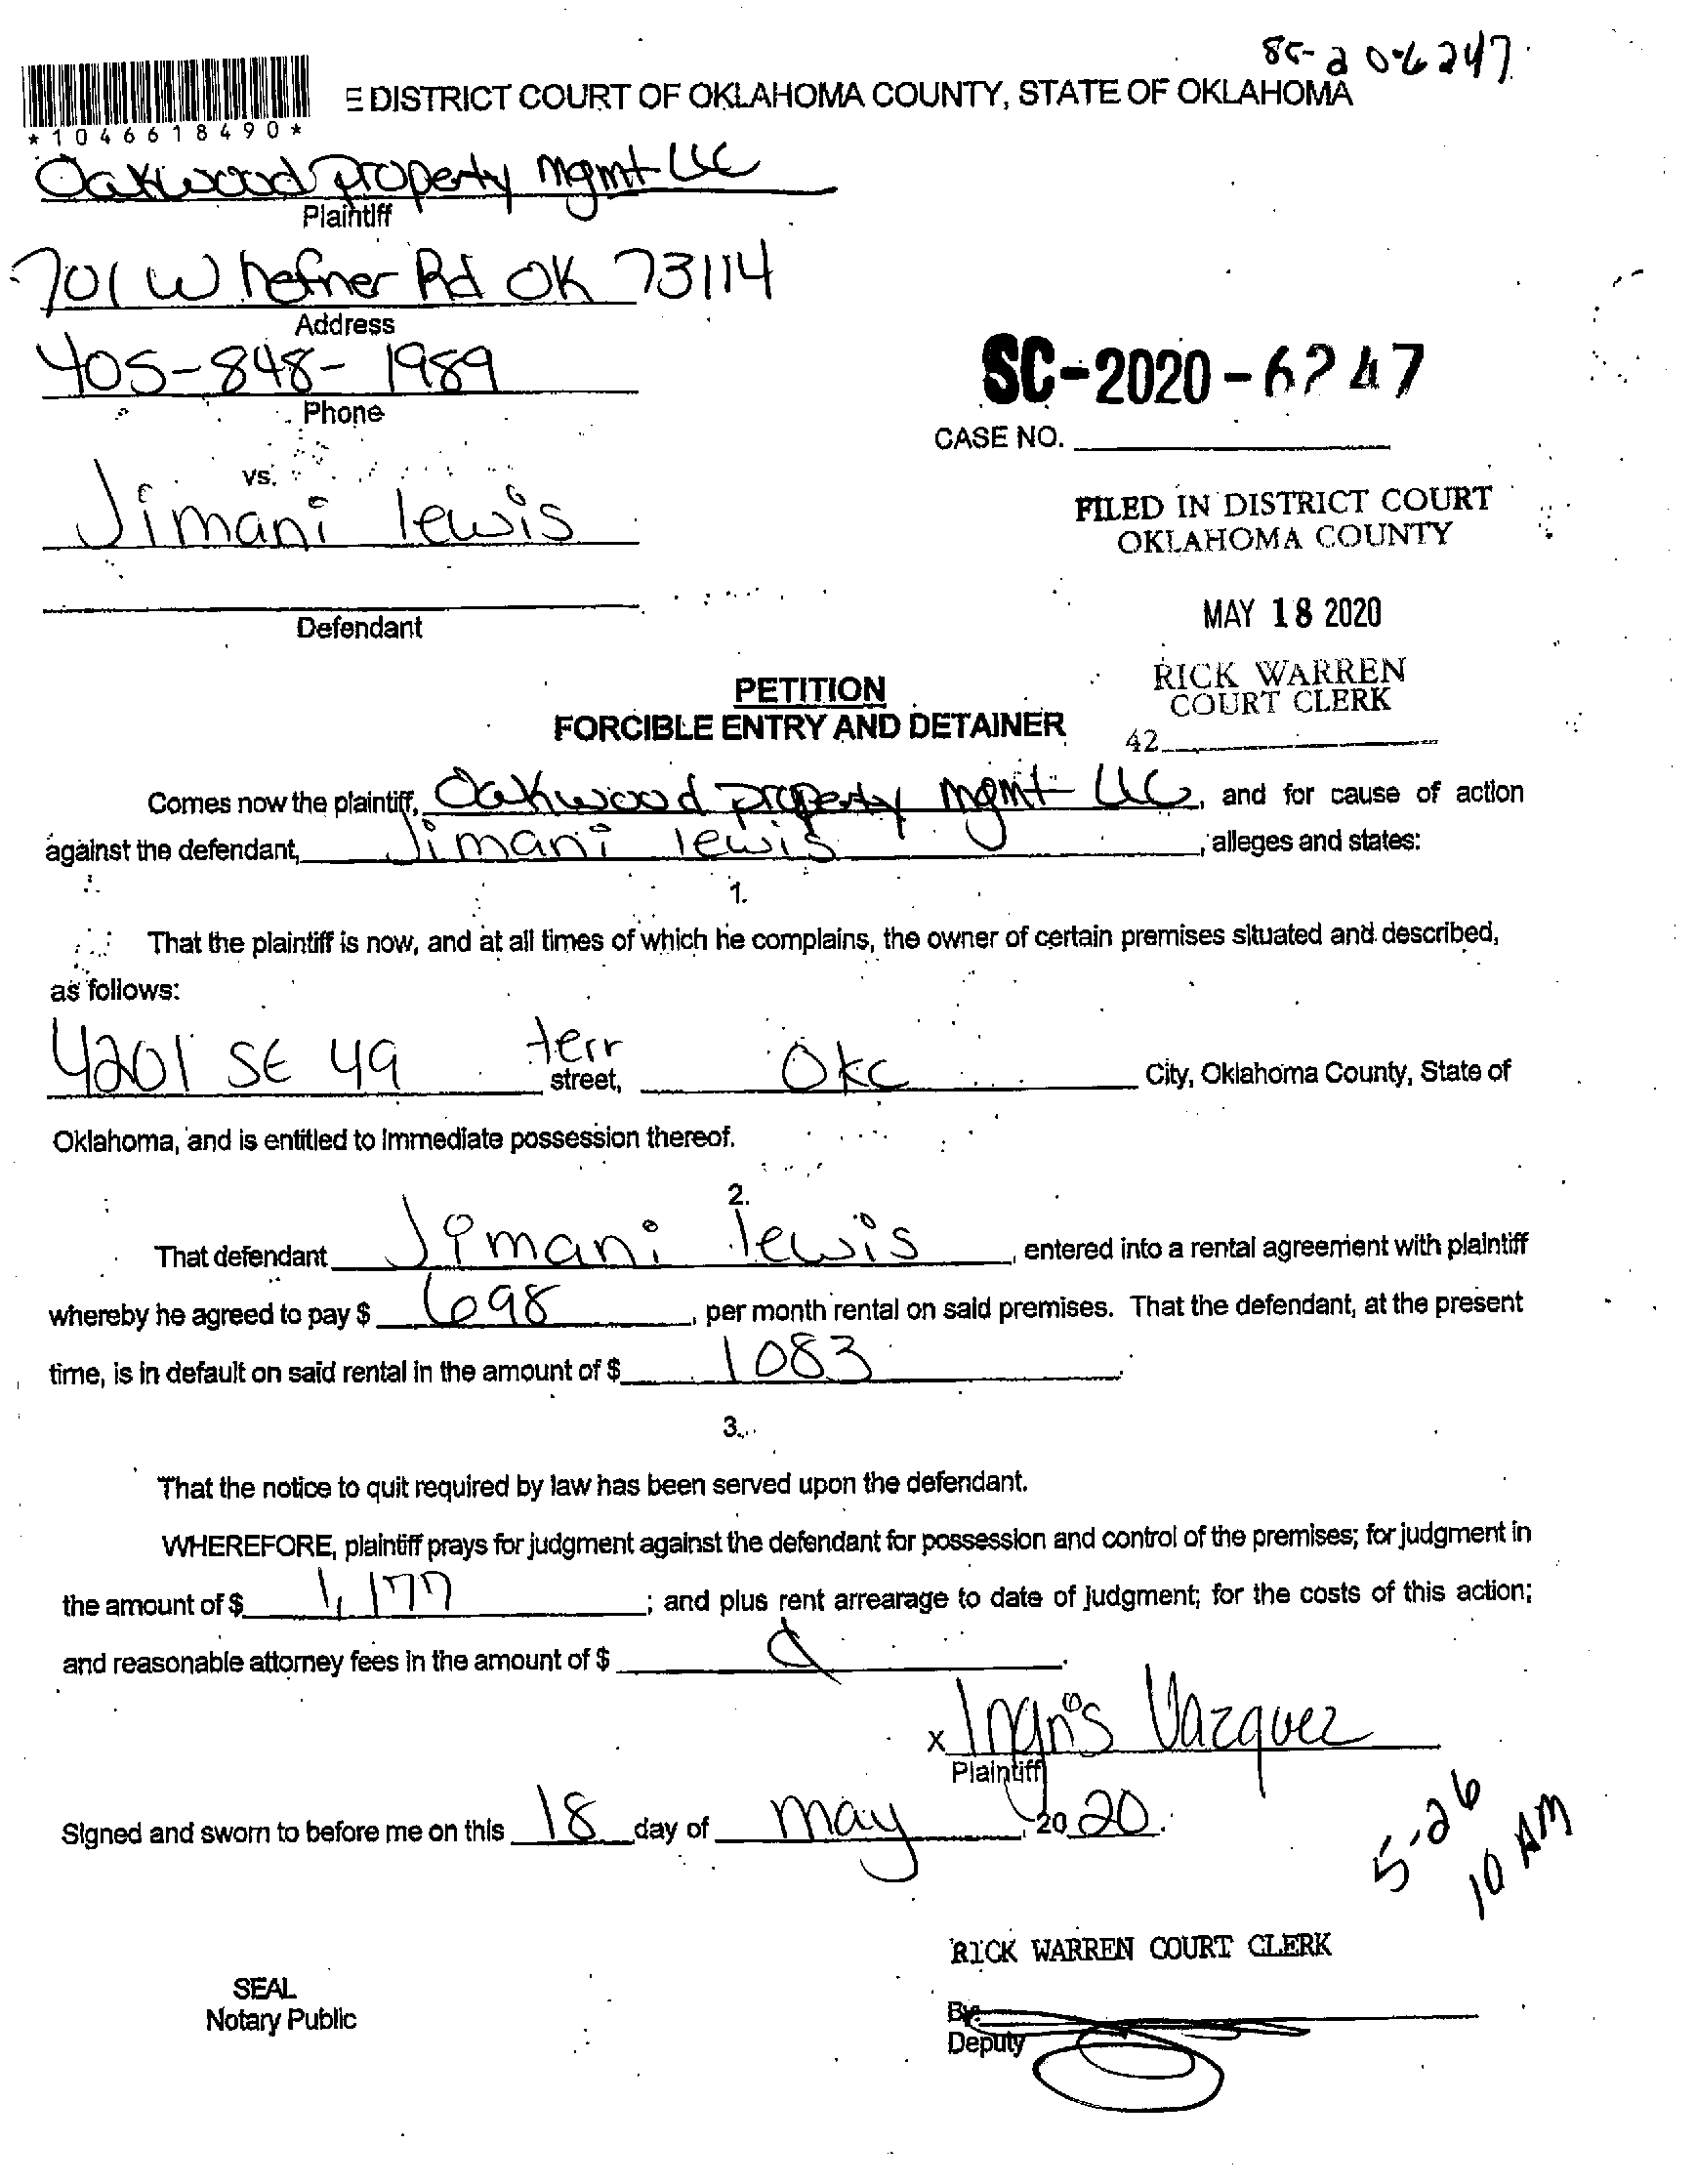 SC-20-6247
E DISTRICT COURT OF OKLAHOMA COUNTY, STATE OF OKLAHOMA
*1046618490*
Oakwood property mgmt LLC
Plaintiff
701 W hefner Rd OK 73114
Address
405-848-1989
Phone
SC-2020-6247
CASE NO.
vs.
Jimani lewis
FILED IN DISTRICT COURT
OKLAHOMA COUNTY
Defendant
MAY 18 2020
RICK WARREN
COURT CLERK
42
PETITION
FORCIBLE ENTRY AND DETAINER
Comes now the plaintiff, Oakwood property mgmt LLC, and for cause of action
against the defendant, Jimani lewis, alleges and states:
1.
That the plaintiff is now, and at all times of which he complains, the owner of certain premises situated and described,
as follows:
4201 SE 49 terr street, Okc City, Oklahoma County, State of
Oklahoma, and is entitled to immediate possession thereof.
2.
That defendant Jimani lewis, entered into a rental agreement with plaintiff
whereby he agreed to pay $ 698, per month rental on said premises. That the defendant, at the present
time, is in default on said rental in the amount of $ 1083.
3.
That the notice to quit required by law has been served upon the defendant.
WHEREFORE, plaintiff prays for judgment against the defendant for possession and control of the premises; for judgment in
the amount of $ 1,177; and plus rent arrearage to date of judgment; for the costs of this action;
and reasonable attorney fees in the amount of $
x Vazquez
Plaintiff
Signed and sworn to before me on this 18 day of may, 2020.
5-26
10 AM
RICK WARREN COURT CLERK
SEAL
Notary Public
By:
Deputy